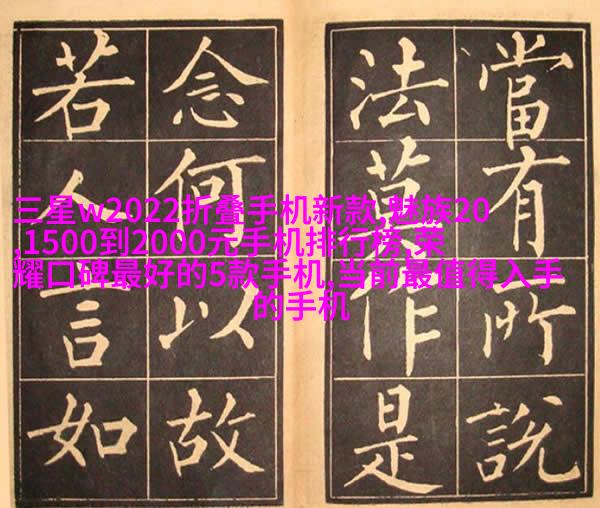 當有所説
法莫作是
念何以故
若人言如
三星w2022折叠手机新款,魅族20
,1500到2000元手机排行榜,荣
耀口碑最好的5款手机,当前最值得入手
的手机